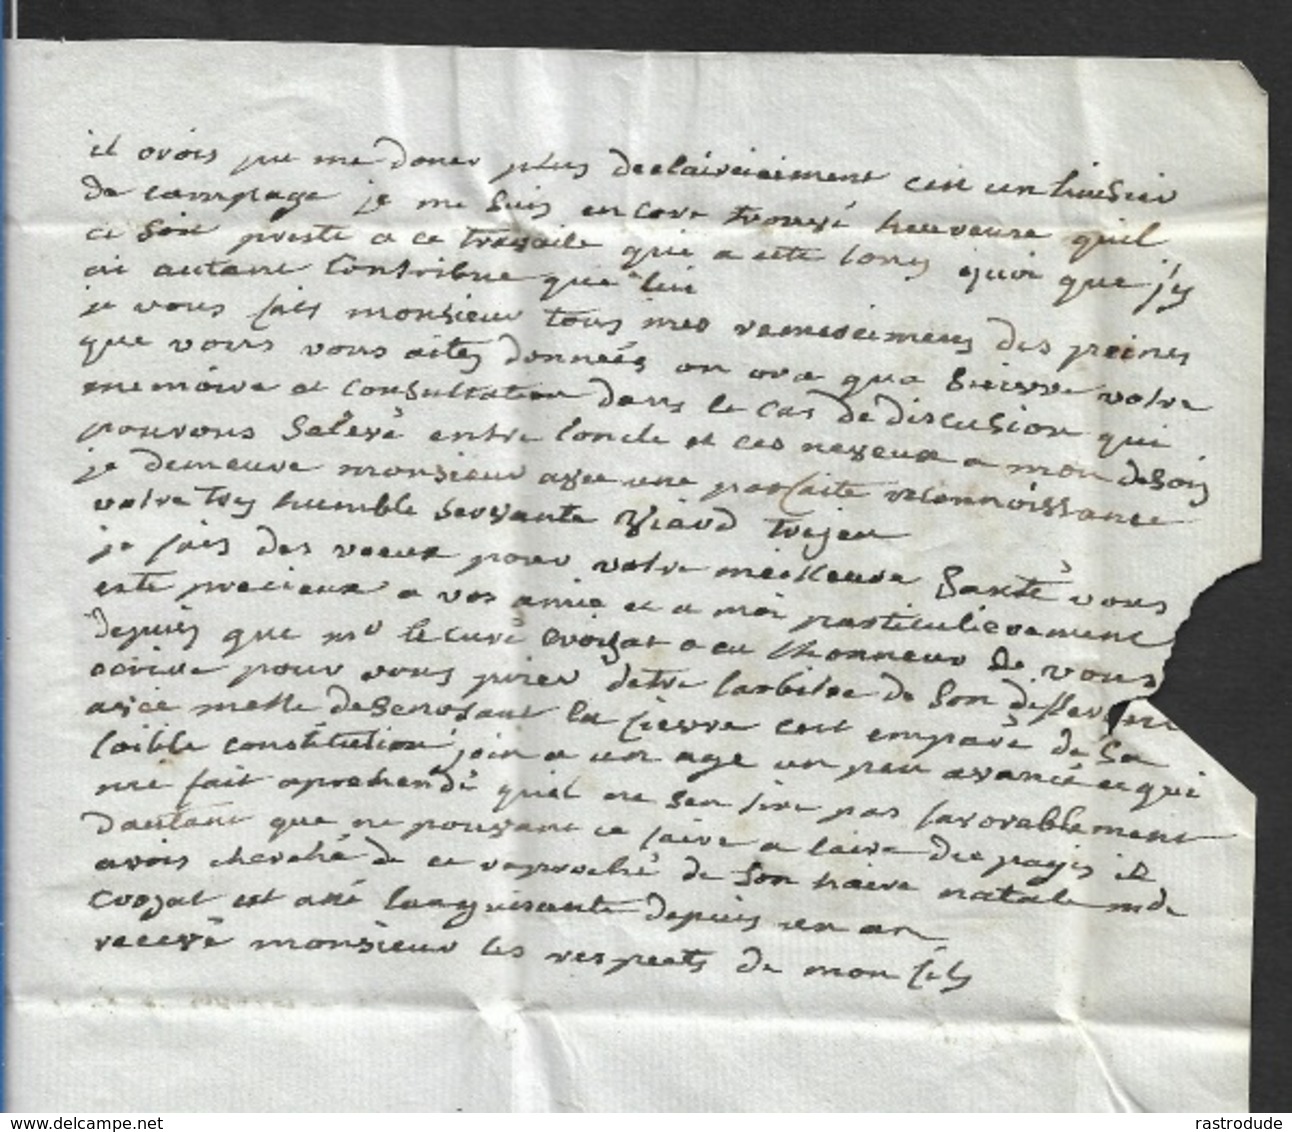 il orois pu me doner plus declairciciment cest un huisier
de campage je me suis encore trouvé heureuse quil
ce soit presté a ce travaile qui a esté long quoi que jy
ai autant contribue que lui
je vous fais monsieur tous mes remersimens des peines
que vous vous aites données on ora qua suivre votre
memoire et consultation dans le cas de discusion qui
pouvons salevé entre loncle et ces neveux a mon desois
je demeure monsieur avec une parfaite reconnoissance
votre tres humble servante Viard Trejeu
je fais des voeux pour votre meilleure santé vous
este precieux a vos amie et a moi particulierement
depuis que mr le curé croizat a eu lhonneur de vous
ecrire pour vous prier detre larbitre de son diferent
avec melle desenosant la fievre cest emparé de sa
foible constitution join a un age un peu avancé ce qui
me fait aprehendé quil ne sen tire pas favorablement
dautant que ne pouvant ce faire a laire des payis il
avois cherché de ce raproché de son haire natale mde
crozat est ausé languisante depuis un an
recevé monsieur les respects de mon fils
www.delcampe.net
rastrodude